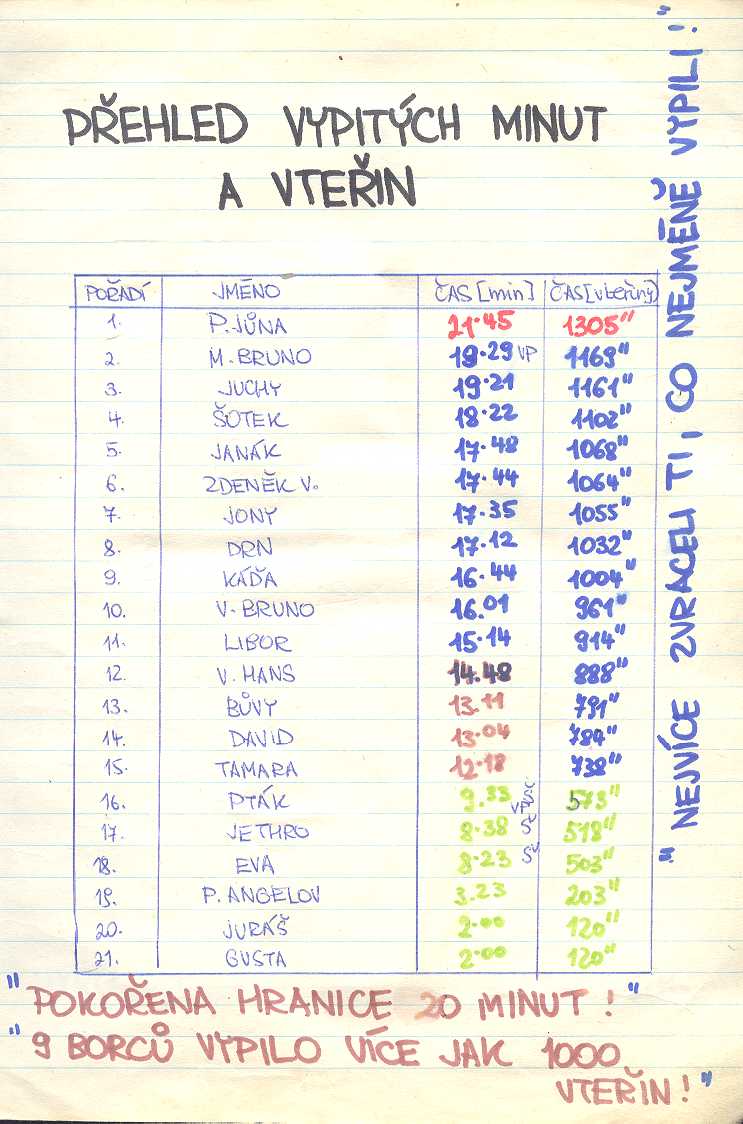 PŘEHLED VYPITÝCH MINUT
A VTEŘIN
POŘADÍ JMÉNO ČAS [min] ČAS [vteřiny]
1. P. JŮNA 21.45 1305"
2. M. BRUNO 19.29 VP 1169"
3. JUCHY 19.21 1161"
4. ŠOTEK 18.22 1102"
5. JANÁK 17.48 1068"
6. ZDENĚK V. 17.44 1064"
7. JONY 17.35 1055"
8. DRN 17.12 1032"
9. KÁĎA 16.44 1004"
10. V. BRUNO 16.01 961"
11. LIBOR 15.14 914"
12. V. HANS 14.48 888"
13. BŮVY 13.11 791"
14. DAVID 13.04 784"
15. TAMARA 12.18 738"
16. PTÁK 9.33 573"
17. JETHRO 8.38 518"
18. EVA 8.23 503"
19. P. ANGELOV 3.23 203"
20. JURÁŠ 2.00 120"
21. GUSTA 2.00 120"
"POKOŘENA HRANICE 20 MINUT!"
"9 BORCŮ VYPILO VÍCE JAK 1000
VTEŘIN!"
"NEJVÍCE ZVRACELI TI, CO NEJMÉNĚ VYPILI!"